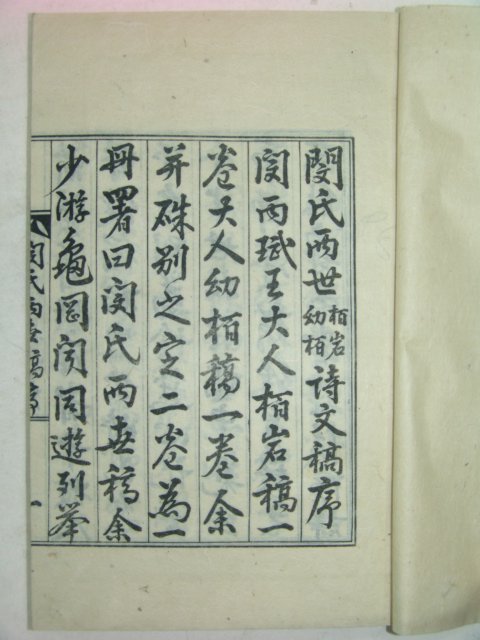 閔氏兩世柏岩幼栢詩文稿序
閔雨斌王大人栢岩稿一
卷大人幼栢稿一卷余
并硃别之定二卷為一
冊署曰閔氏兩世稿余
少游龜岡閔同遊列拳
閔氏兩世稿序
一